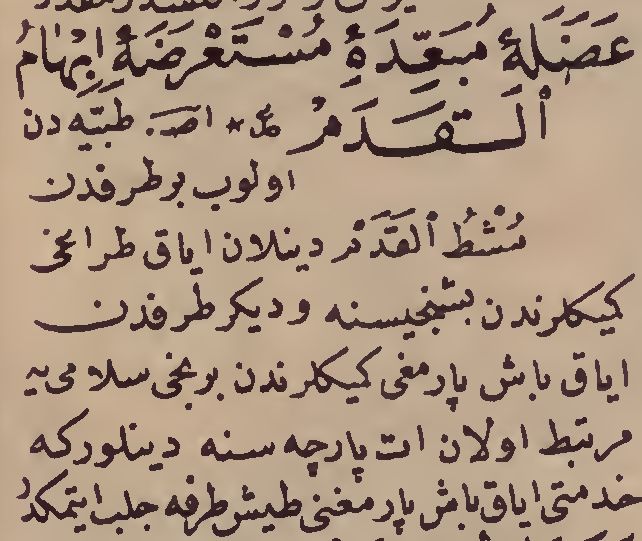 عَضَلَهٔ مُبَعِّدَهٔ مُسْتَعْرِضَهٔ اِبْهَامُ
ٱلْقَدَمْ * اصـ. طبيّه دن
اولوب بر طرفدن
مُشْطُ ٱلْقَدَمْ دينلان اياق طراغى
كيكلرندن بشنجيسنه و ديكر طرفدن
اياق باش پارمغى كيكلرندن برنجى سلامى يه
مرتبط اولان ات پارچه سنه دينلوركه
خدمتى اياق باش پارمغنى طيش طرفه جلب ايتمكدر